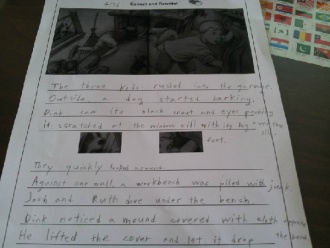 Correct and Rewrite!
The three kids rushed into the garage.
Outside a dog started barking.
Dink saw its black snout and eyes peering
it scratched at the window sill with its big
feet.
They quickly looked around
Against one wall, a workbench was piled with junk.
Josh and Ruth dove under the bench.
Dink noticed a mound covered with cloth opposite
the bench.
He lifted the cover and let it drop